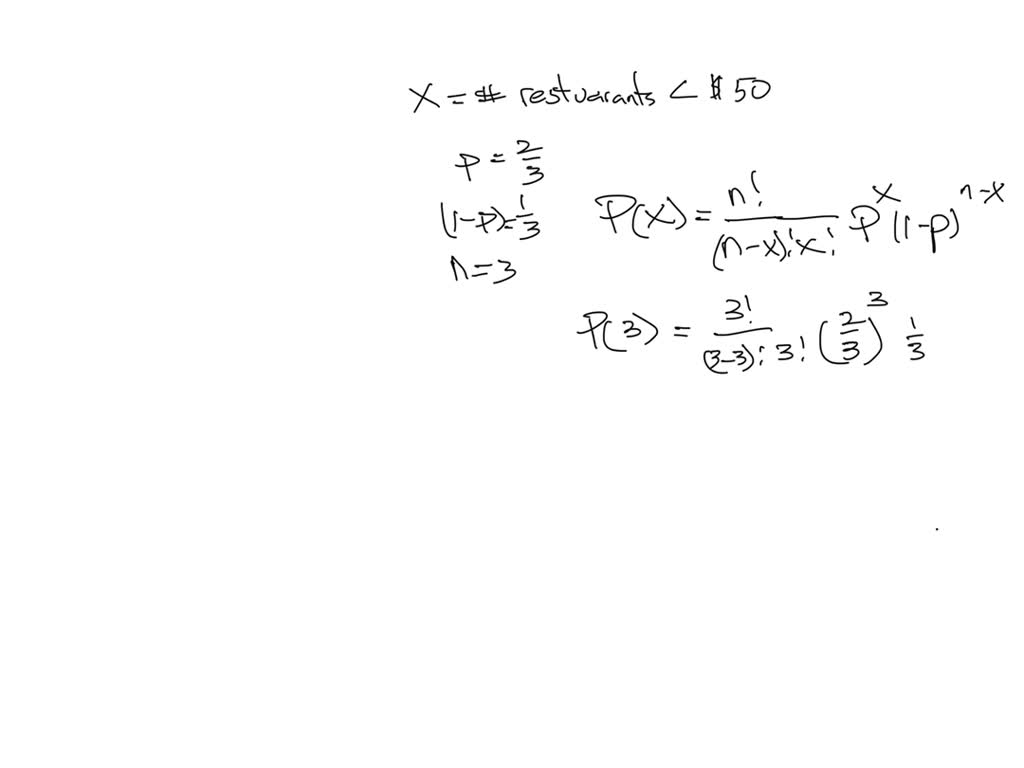 X = # restuarants < $50
p = 2/3
(1-p) = 1/3
n = 3
P(x) = n!/((n-x)! x!) P^x (1-p)^(n-x)
P(3) = 3!/((3-3)! 3!) (2/3)^3 1/3